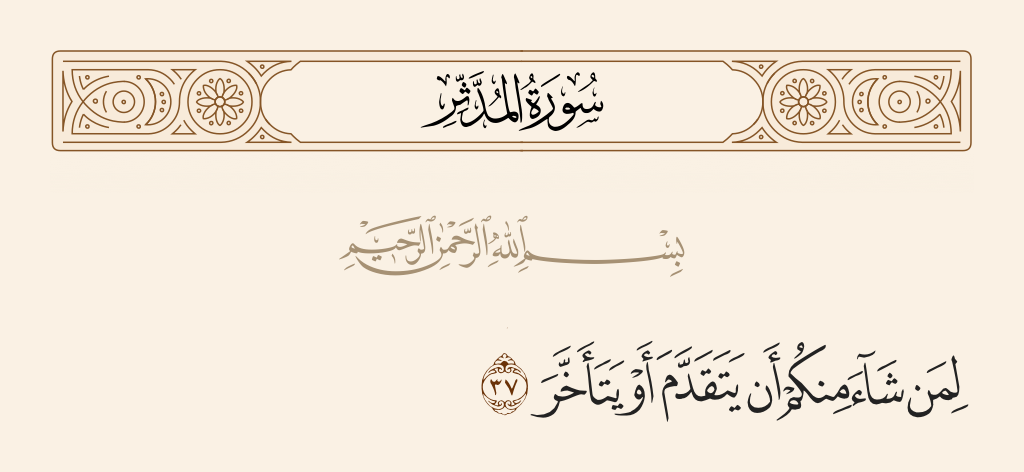 سُورَةُ المُدَّثِّرِ
بِسْمِ ٱللَّهِ ٱلرَّحْمَٰنِ ٱلرَّحِيمِ
لِمَن شَآءَ مِنكُمْ أَن يَتَقَدَّمَ أَوْ يَتَأَخَّرَ ٣٧